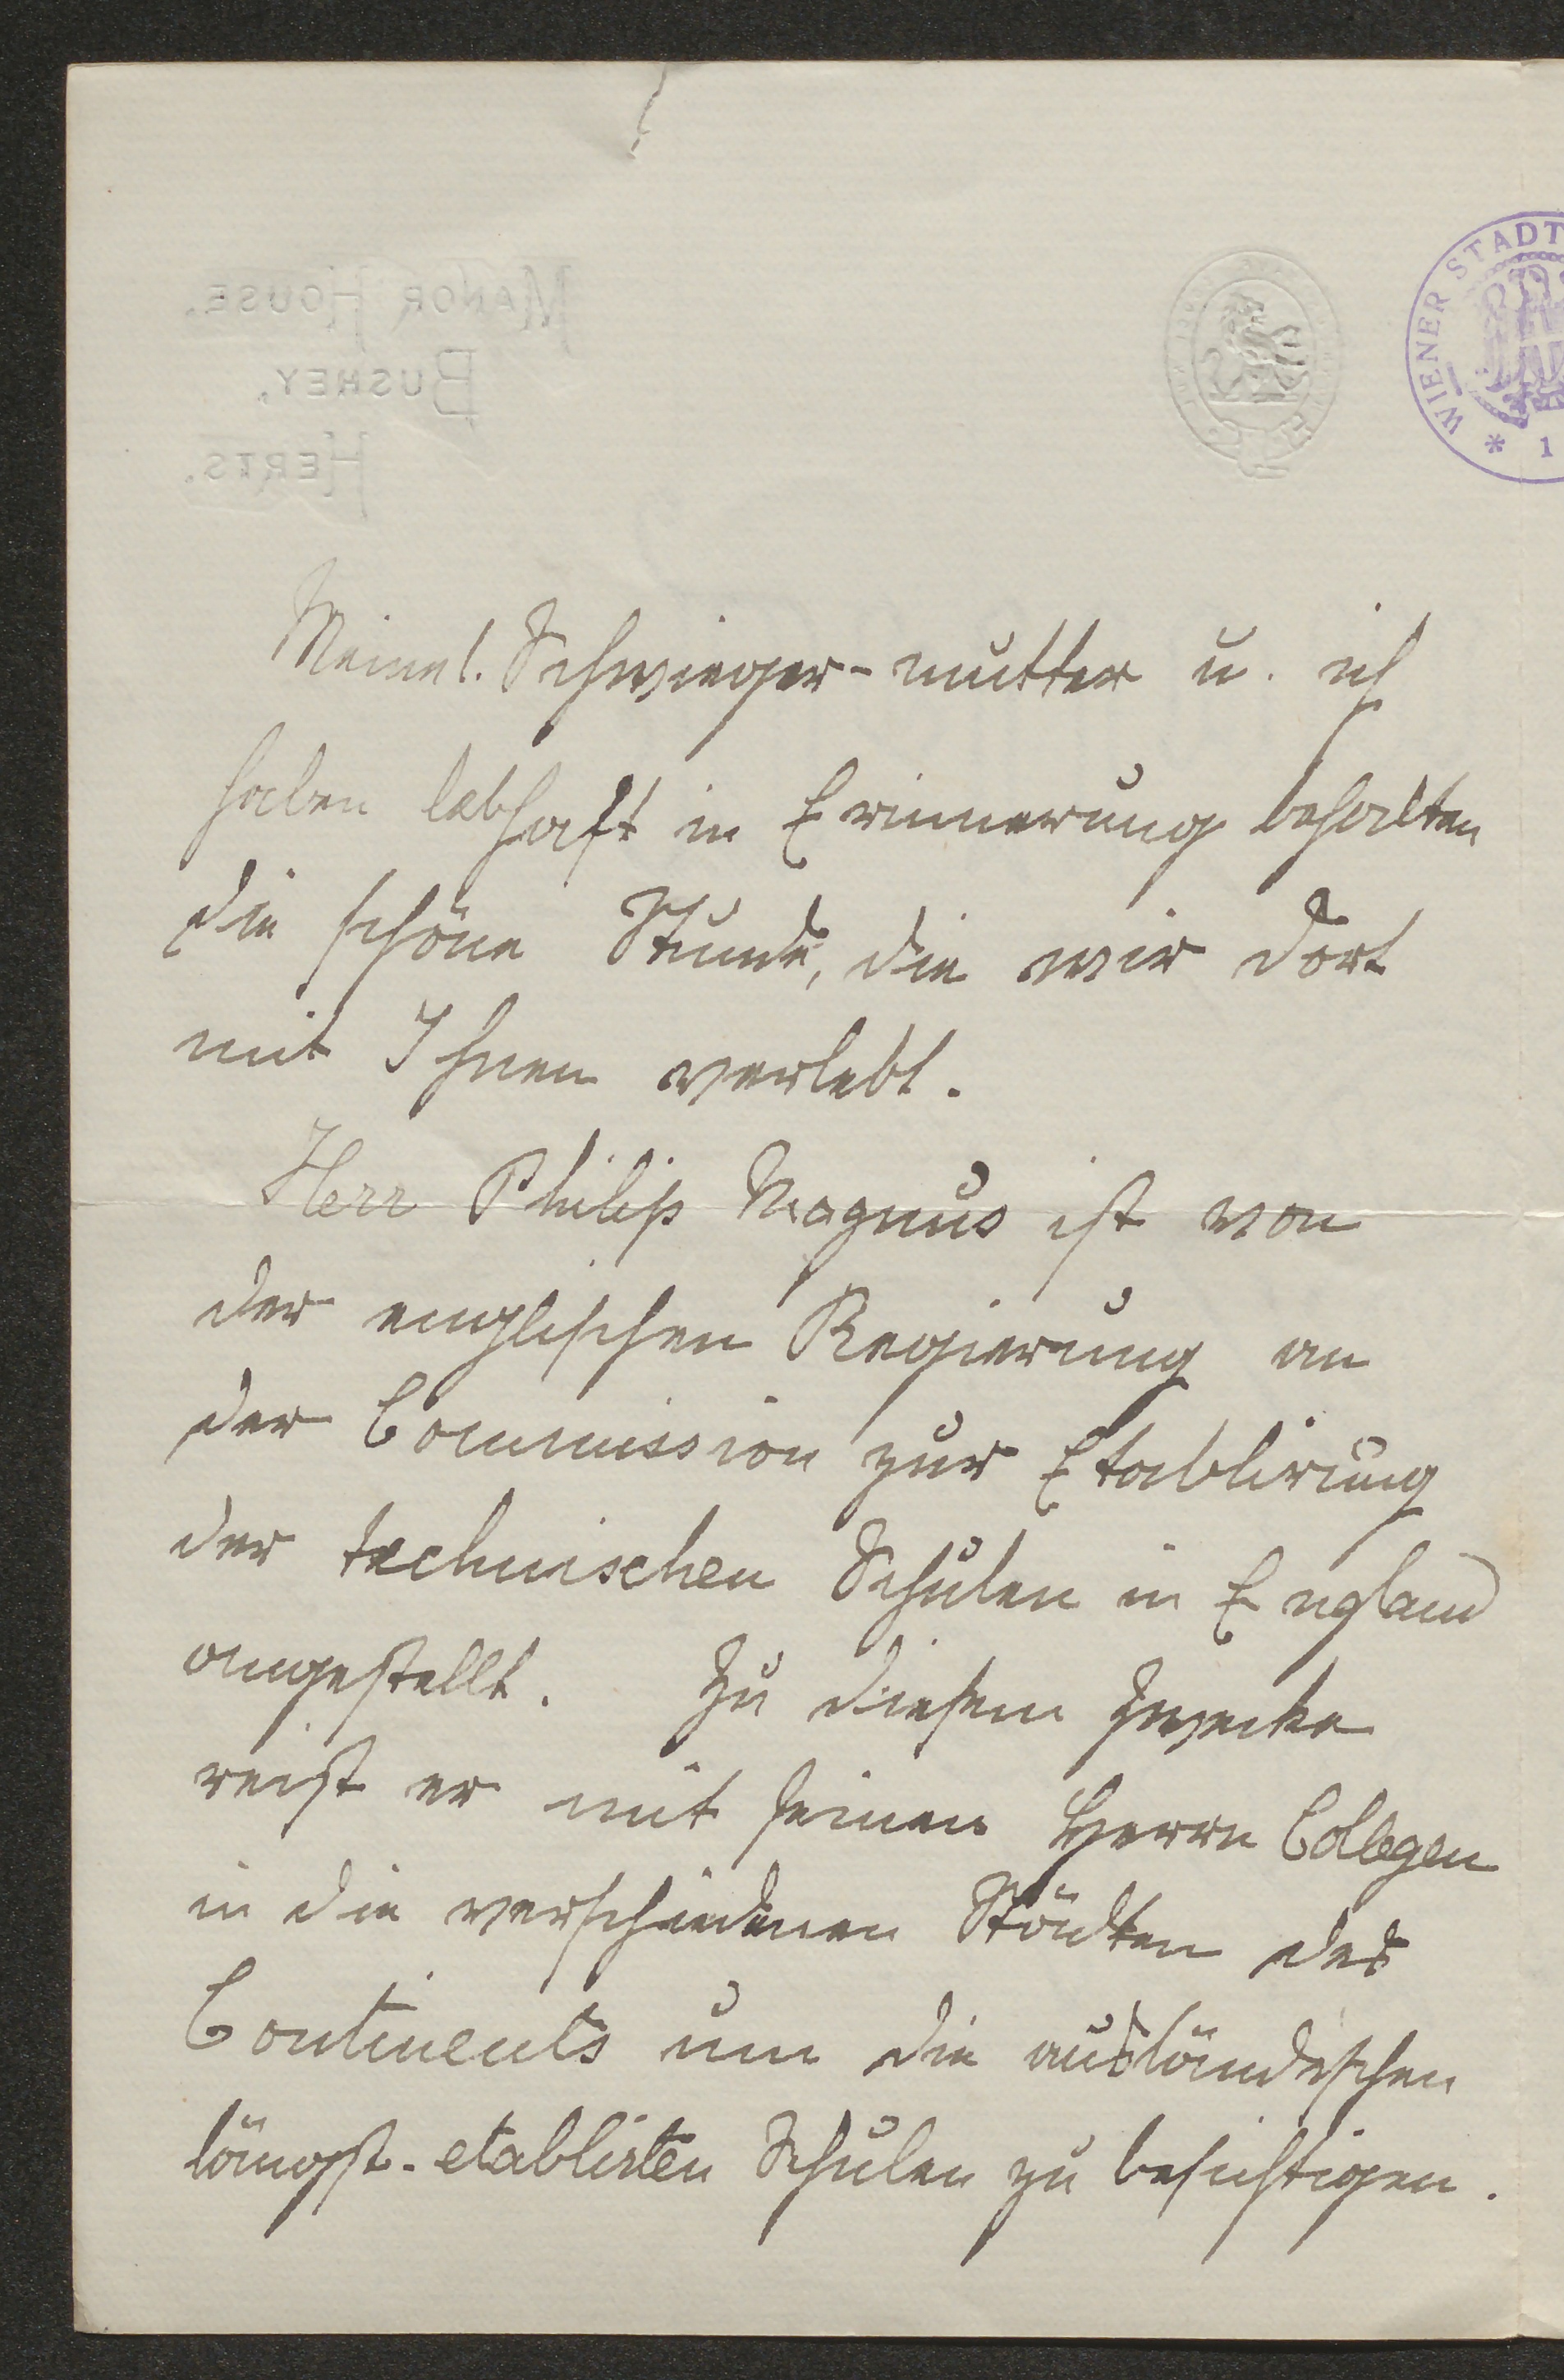 MANOR HOUSE.
BUSHEY,
HERTS.
WIENER STADT
* 1
Meine l. Schwieger-mutter u. ich
haben lebhaft in Erinnerung behalten
die schöne Stunde, die wir dort
mit Ihnen verlebt.
Herr Philip Magnus ist von
der englischen Regierung an
der Commission zur Etablirung
der technischen Schulen in England
angestellt. Zu diesem Zwecke
reist er mit seinen Herrn Collegen
in die verschiedenen Städten des
Continents um die ausländischen
längst-etablirten Schulen zu besichtigen.